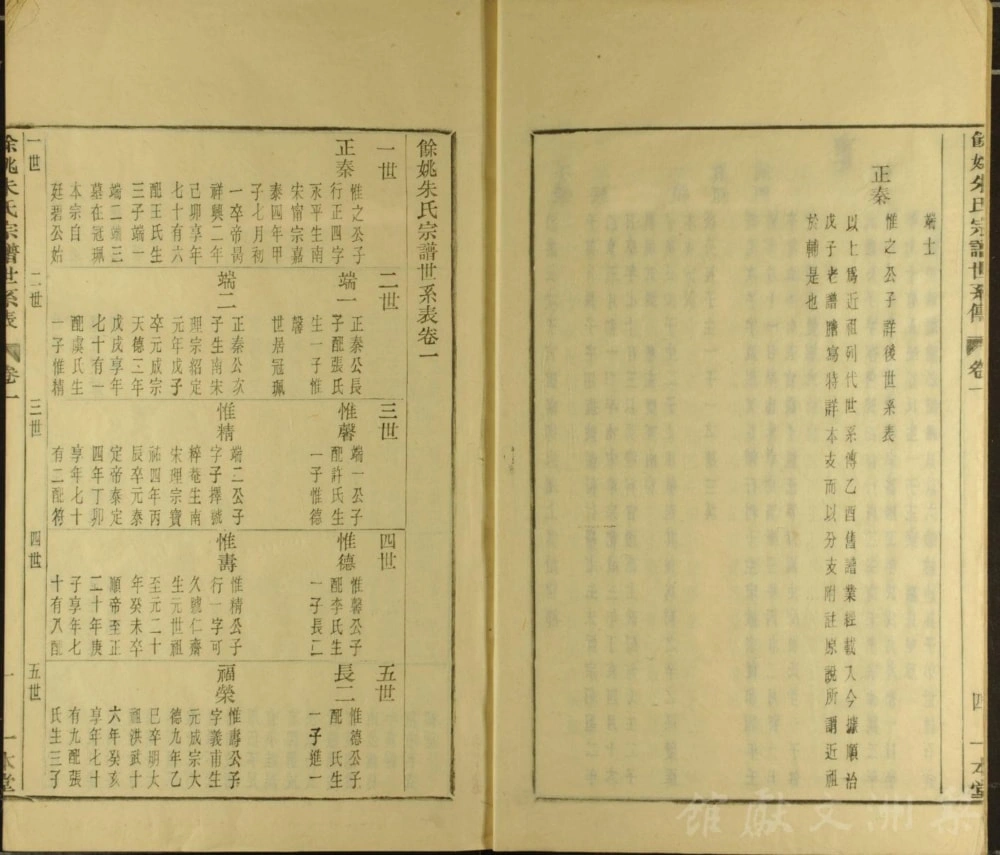 餘姚朱氏宗譜世系傳
卷一
四
一本堂
端士
正秦
惟之公子詳後世系表
以上爲近祖列代世系傳乙酉舊譜業經載入今據順治
戊子老譜謄寫特詳本支而以分支附註原說所謂近祖
於輔是也
餘姚朱氏宗譜世系表卷一
一世
正秦
惟之公子
行正四字
永平生南
宋甯宗嘉
泰四年甲
子七月初
一卒帝昺
祥興二年
己卯享年
七十有六
配王氏生
三子端一
端二端三
墓在冠珮
本宗自
廷碧公始
二世
端一
正秦公長
子配張氏
生一子惟
馨
世居冠珮
端二
正秦公次
子生南宋
理宗紹定
元年戊子
卒元成宗
大德二年
戊戌享年
七十有一
配虞氏生
一子惟精
三世
惟馨
端一公子
配許氏生
一子惟德
惟精
端二公子
字子擇號
粹菴生南
宋理宗寶
祐四年丙
辰卒元泰
定帝泰定
四年丁卯
享年七十
有二配符
四世
惟德
惟馨公子
配李氏生
一子長二
惟壽
惟精公子
行一字可
久號仁齋
生元世祖
至元二十
年癸未卒
順帝至正
二十年庚
子享年七
十有八配
五世
長二
惟德公子
配 氏生
一子進一
福榮
惟壽公子
字義甫生
元成宗大
德九年乙
巳卒明太
祖洪武十
六年癸亥
享年七十
有九配張
氏生三子
餘姚朱氏宗譜世系表
卷一
一
一本堂
一世
二世
三世
四世
五世
梨洲文獻館